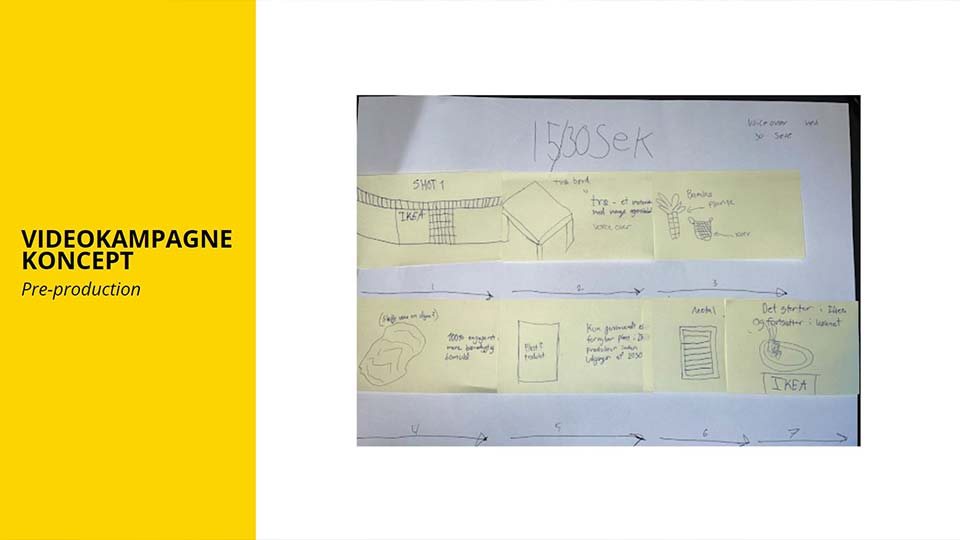 VIDEOKAMPAGNE
KONCEPT
Pre-production
15/30 Sek
Voice over ved
30 Sek
SHOT 1
IKEA
Træ bord
træ - et materiale
med mange
voice over
Bambus
Plante
kurv
1
2
3
100% engageret
mere bæredygtig
bomuld
Plast
Produkt
Kun genanvendt
plast i
produkter inden
udgangen af 2030
Metal
Det starter i Ikea
og fortsætter i
IKEA
4
5
6
7